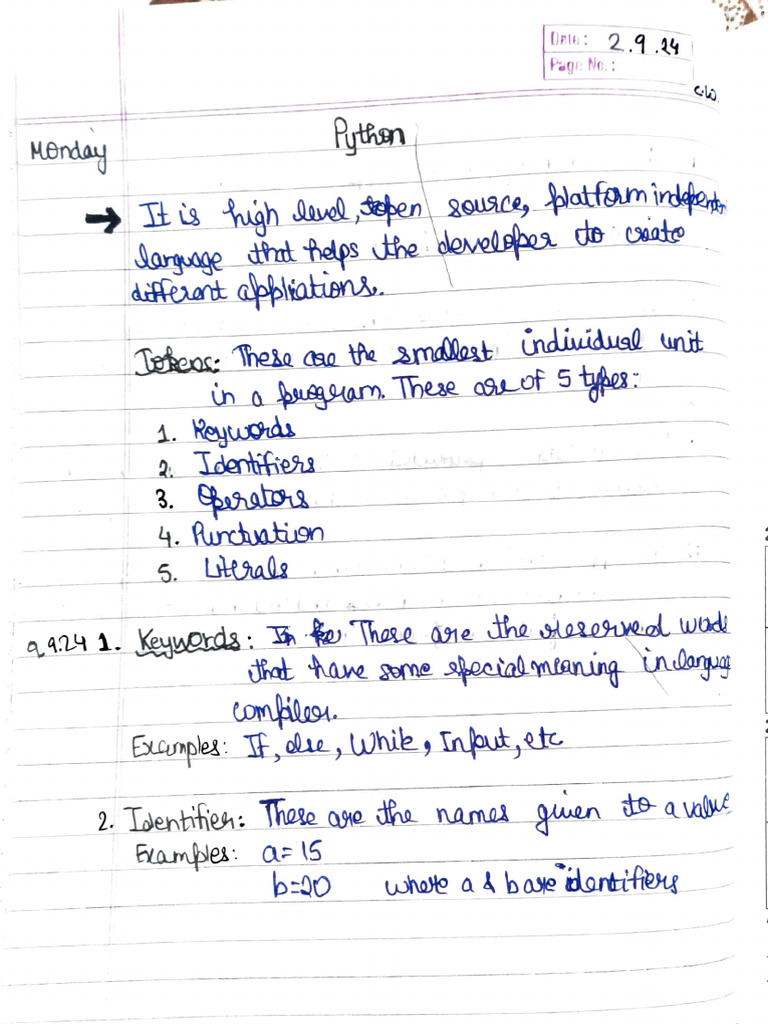 Date: 2.9.24
Page No.:
C.W.
Monday
Python
→ It is high level, open source, platform independen
language that helps the developer to create
different appliations.
Tokens: These are the smallest individual unit
in a program. These are of 5 types:
1. Keywords
2. Identifiers
3. Operators
4. Punctuation
5. Literals
9.9.24 1. Keywords: These are the reserved words
that have some special meaning in language
compiler.
Examples: If, else, While, Input, etc
2. Identifier: These are the names given to a value
Examples: a=15
b=20 where a & b are identifiers